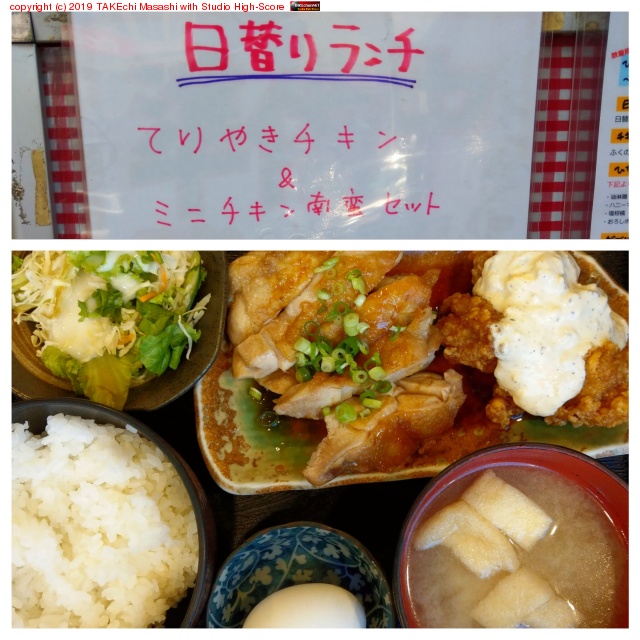 copyright (c) 2019 TAKEchi Masashi with Studio High-Score
日替りランチ
てりやきチキン
&
ミニチキン南蛮セット
日替
ふくの
下記よ